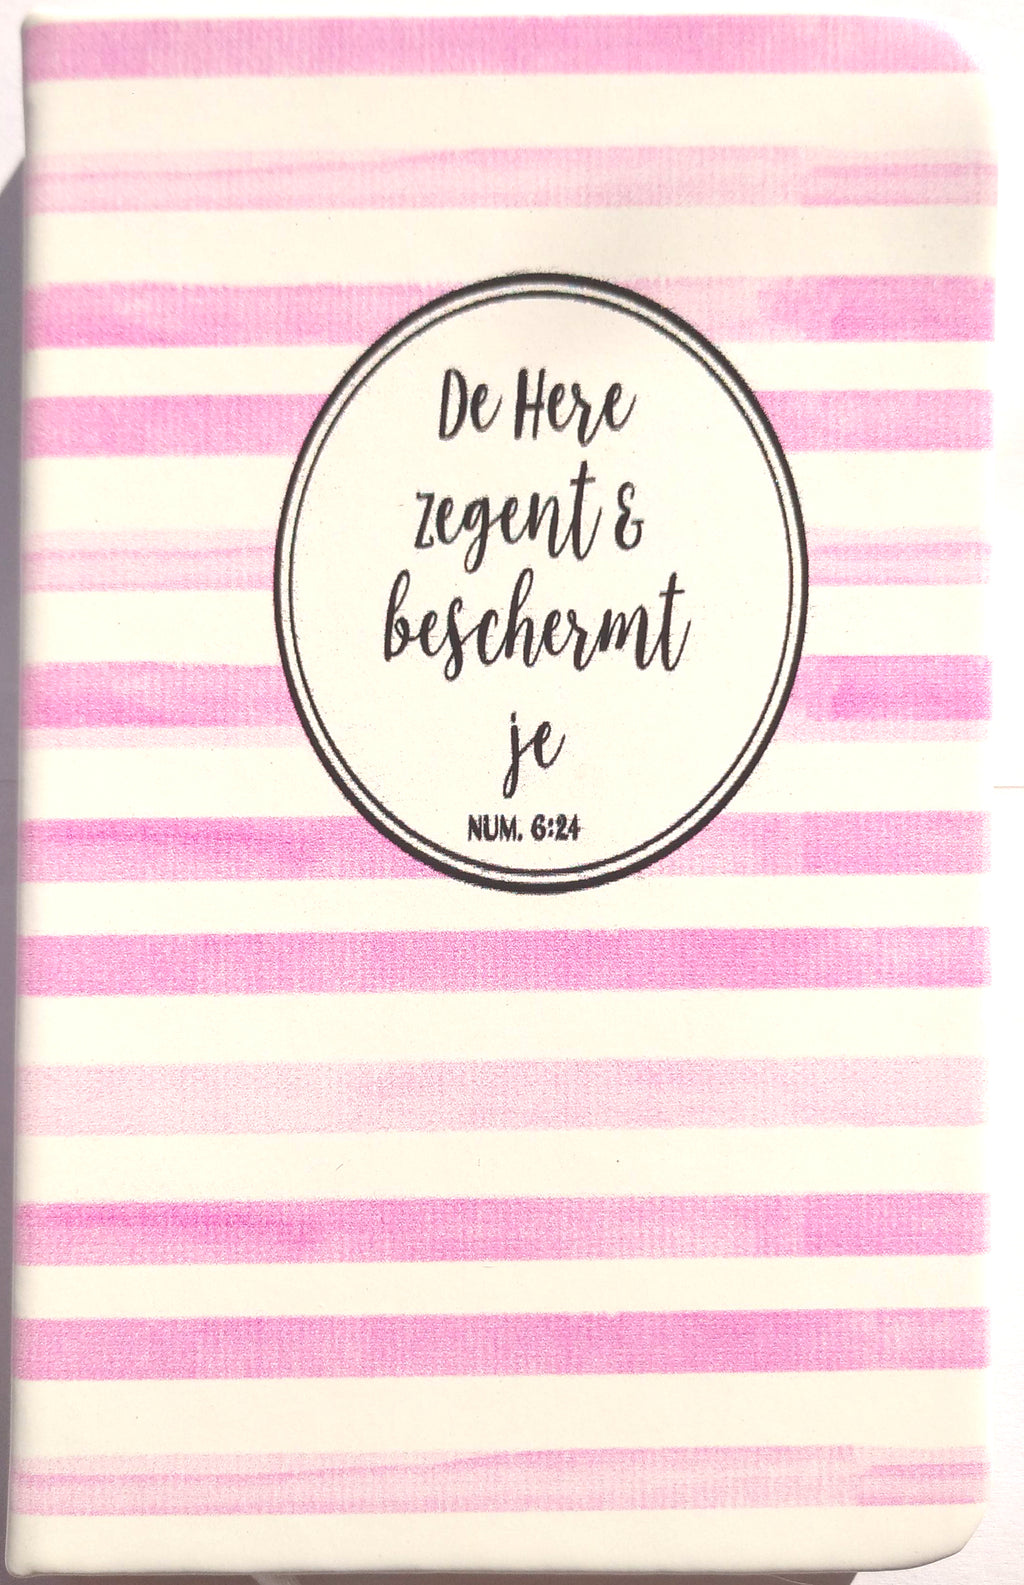 De Here
zegent &
beschermt
je
NUM. 6:24